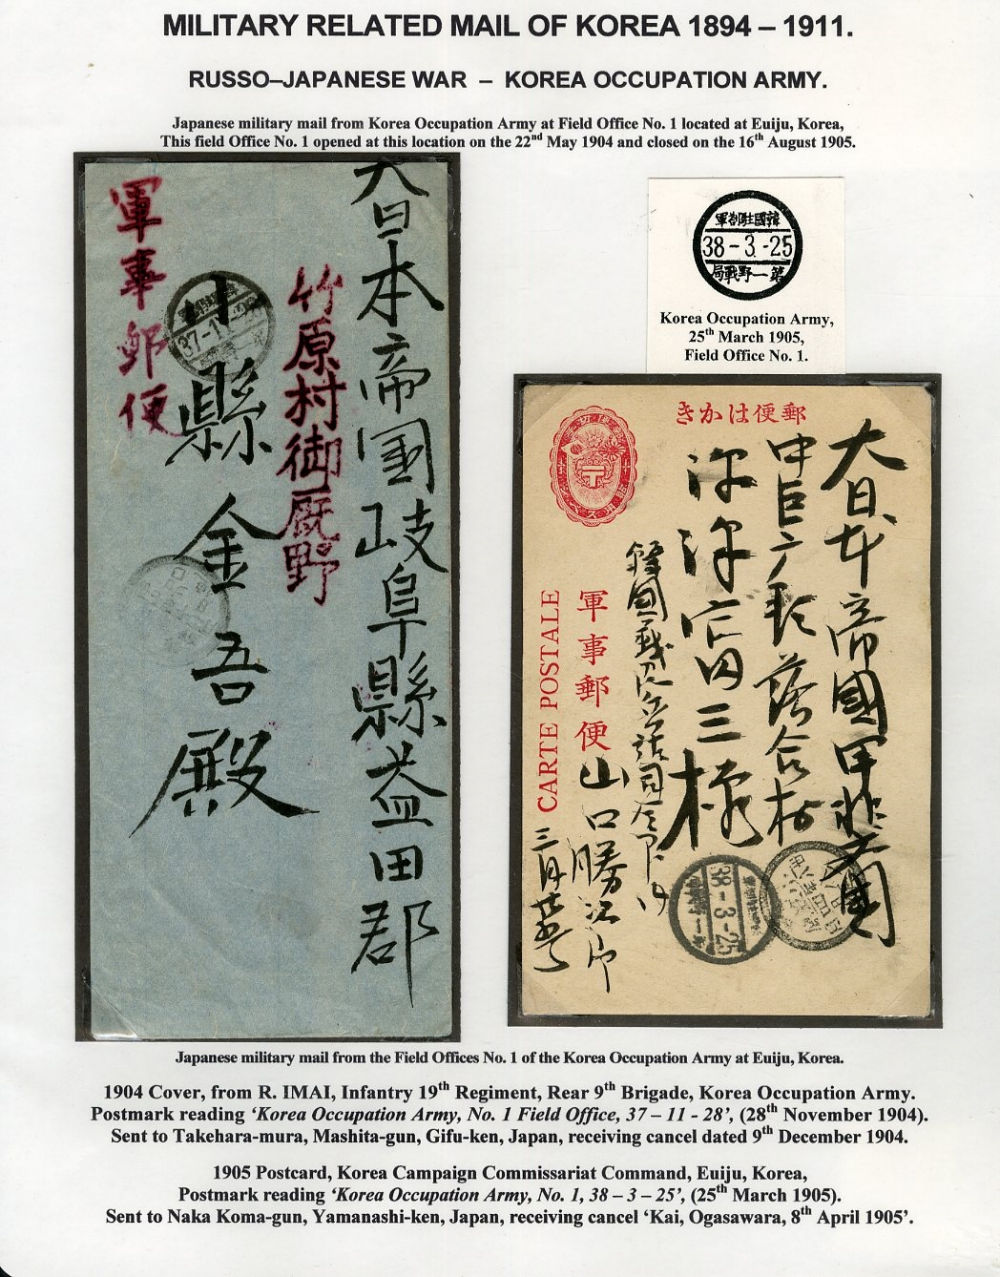 MILITARY RELATED MAIL OF KOREA 1894 – 1911.
RUSSO–JAPANESE WAR – KOREA OCCUPATION ARMY.
Japanese military mail from Korea Occupation Army at Field Office No. 1 located at Euiju, Korea,
This field Office No. 1 opened at this location on the 22nd May 1904 and closed on the 16th August 1905.
大日本帝国岐阜縣益田郡
竹原村御厩野
小縣金吾殿
軍事郵便
37-11
韓國駐劄軍
38-3-25
第一野戰局
Korea Occupation Army,
25th March 1905,
Field Office No. 1.
郵便はかき
大日本帝國甲斐國
中巨广郡落合村
三様
韓國
山口勝江
三月廿五
軍事郵便
CARTE POSTALE
38-3-25
Japanese military mail from the Field Offices No. 1 of the Korea Occupation Army at Euiju, Korea.
1904 Cover, from R. IMAI, Infantry 19th Regiment, Rear 9th Brigade, Korea Occupation Army.
Postmark reading ‘Korea Occupation Army, No. 1 Field Office, 37 – 11 - 28’, (28th November 1904).
Sent to Takehara-mura, Mashita-gun, Gifu-ken, Japan, receiving cancel dated 9th December 1904.
1905 Postcard, Korea Campaign Commissariat Command, Euiju, Korea,
Postmark reading ‘Korea Occupation Army, No. 1, 38 – 3 – 25’, (25th March 1905).
Sent to Naka Koma-gun, Yamanashi-ken, Japan, receiving cancel ‘Kai, Ogasawara, 8th April 1905’.